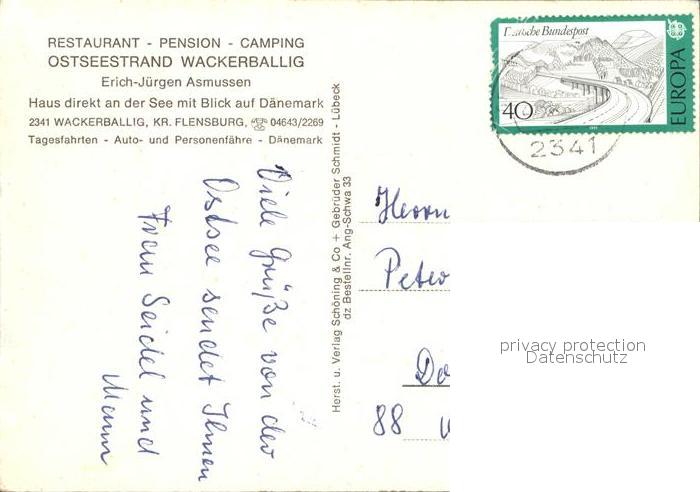 RESTAURANT - PENSION - CAMPING
OSTSEESTRAND WACKERBALLIG
Erich-Jürgen Asmussen
Haus direkt an der See mit Blick auf Dänemark
2341 WACKERBALLIG, KR. FLENSBURG, ☎ 04643/2269
Tagesfahrten - Auto- und Personenfähre - Dänemark
Viele Grüße von der
Ostsee sendet Ihnen
Frau Seidel und
Mann
Herst. u. Verlag Schöning & Co + Gebrüder Schmidt - Lübeck
dz Bestellnr. Ang-Schwa 33
Deutsche Bundespost
40
EUROPA
2341
Herrn
Peter
Do
88
privacy protection
Datenschutz